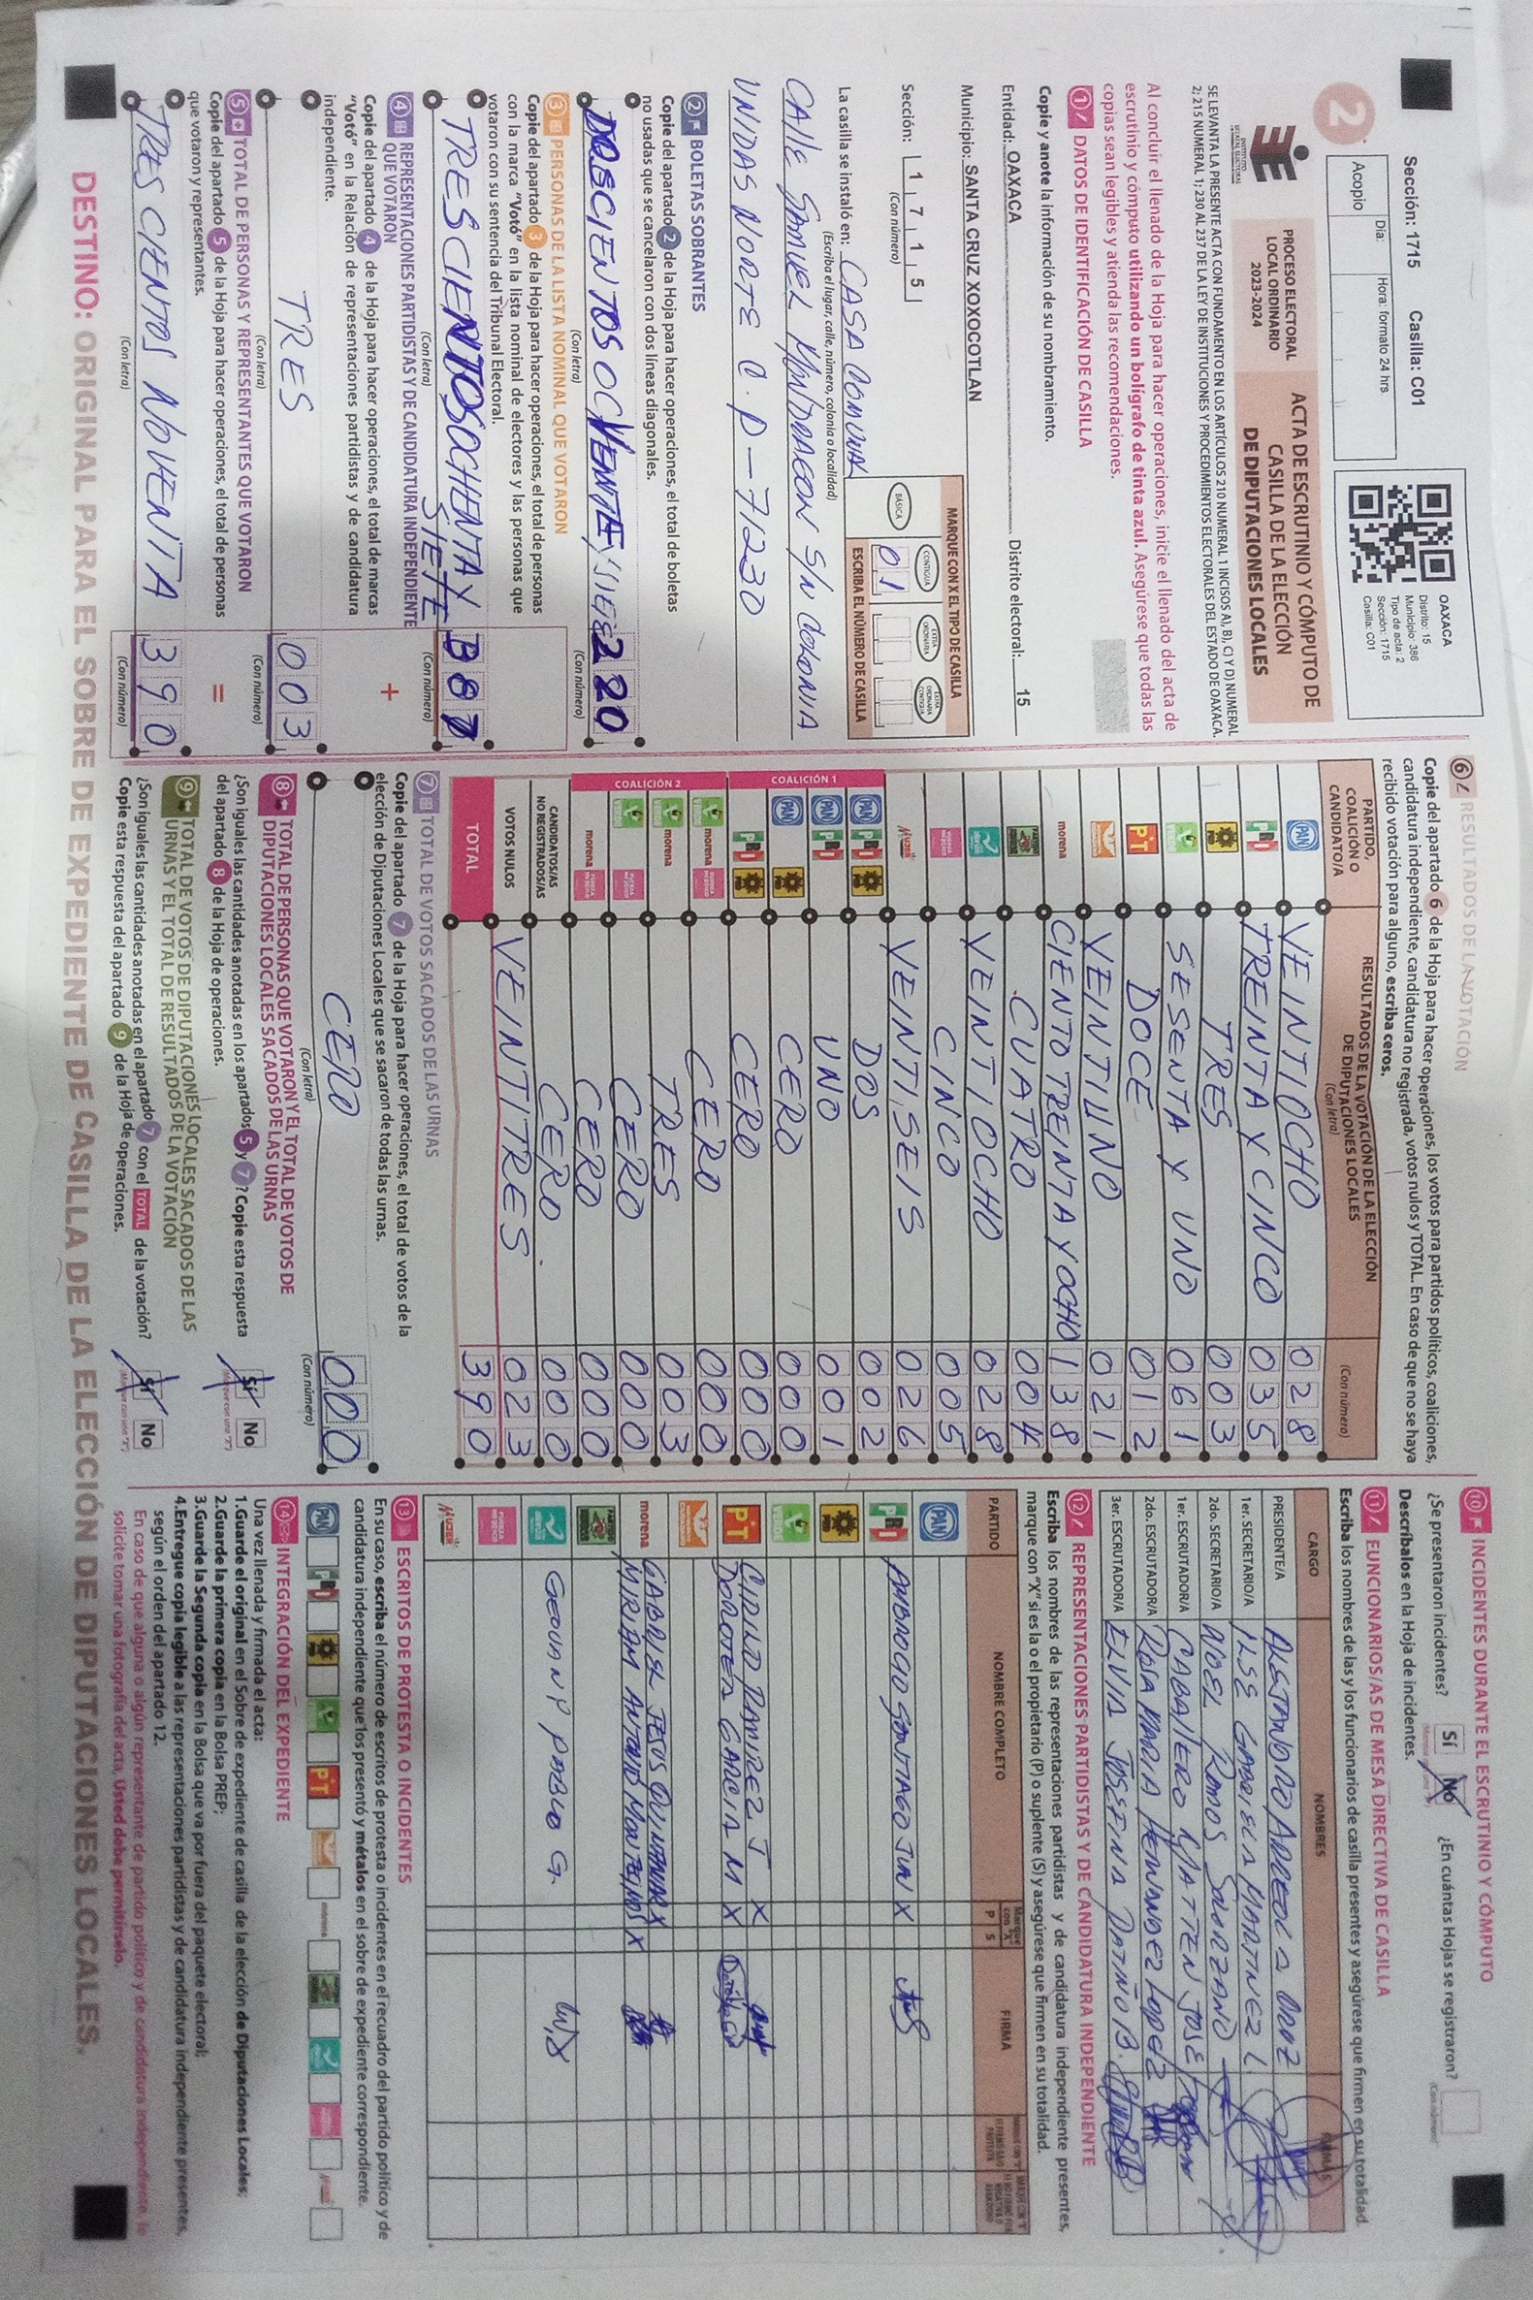 Sección: 1715 Casilla: C01
Día: Hora: formato 24 hrs
Acopio
OAXACA
Distrito: 15
Municipio: 386
Tipo de acta: 2
Sección: 1715
Casilla: C01
2
PROCESO ELECTORAL
LOCAL ORDINARIO
2023-2024
ACTA DE ESCRUTINIO Y CÓMPUTO DE
CASILLA DE LA ELECCIÓN
DE DIPUTACIONES LOCALES
SE LEVANTA LA PRESENTE ACTA CON FUNDAMENTO EN LOS ARTÍCULOS 210 NUMERAL 1 INCISOS A), B), C) Y D) NUMERAL
2; 215 NUMERAL 1; 230 AL 237 DE LA LEY DE INSTITUCIONES Y PROCEDIMIENTOS ELECTORALES DEL ESTADO DE OAXACA.
Al concluir el llenado de la Hoja para hacer operaciones, inicie el llenado del acta de
escrutinio y cómputo utilizando un bolígrafo de tinta azul. Asegúrese que todas las
copias sean legibles y atienda las recomendaciones.
1 DATOS DE IDENTIFICACIÓN DE CASILLA
Copie y anote la información de su nombramiento.
Entidad: OAXACA Distrito electoral: 15
Municipio: SANTA CRUZ XOXOCOTLAN
Sección: 1 7 1 5
(Con número)
MARQUE CON X EL TIPO DE CASILLA
BÁSICA CONTIGUA EXTRAORDINARIA EXTRAORDINARIA CONTIGUA
01
ESCRIBA EL NÚMERO DE CASILLA
La casilla se instaló en: CASA COMUNAL
(Escriba el lugar, calle, número, colonia o localidad)
CALLE SAMUEL MONDRAGON S/N COLONIA
UNIDAS NORTE C.P - 71230
2 BOLETAS SOBRANTES
Copie del apartado 2 de la Hoja para hacer operaciones, el total de boletas
no usadas que se cancelaron con dos líneas diagonales.
220
(Con letra) (Con número)
3 PERSONAS DE LA LISTA NOMINAL QUE VOTARON
Copie del apartado 3 de la Hoja para hacer operaciones, el total de personas
con la marca "Votó" en la lista nominal de electores y las personas que
votaron con su sentencia del Tribunal Electoral.
TRESCIENTOSOCHENTA Y SIETE 387
(Con letra) (Con número)
4 REPRESENTACIONES PARTIDISTAS Y DE CANDIDATURA INDEPENDIENTE
QUE VOTARON
+
Copie del apartado 4 de la Hoja para hacer operaciones, el total de marcas
"Votó" en la Relación de representaciones partidistas y de candidatura
independiente.
TRES 003
(Con letra) (Con número)
5 TOTAL DE PERSONAS Y REPRESENTANTES QUE VOTARON
=
Copie del apartado 5 de la Hoja para hacer operaciones, el total de personas
que votaron y representantes.
TRES CIENTOS NOVENTA 390
(Con letra) (Con número)
6 RESULTADOS DE LA VOTACIÓN
Copie del apartado 6 de la Hoja para hacer operaciones, los votos para partidos políticos, coaliciones,
candidatura independiente, candidatura no registrada, votos nulos y TOTAL. En caso de que no se haya
recibido votación para alguno, escriba ceros.
PARTIDO,
COALICIÓN O
CANDIDATO/A
RESULTADOS DE LA VOTACIÓN DE LA ELECCIÓN
DE DIPUTACIONES LOCALES
(Con letra) (Con número)
PAN VEINTIOCHO 028
PRI TREINTA Y CINCO 035
PRD TRES 003
VERDE SESENTA Y UNO 061
PT DOCE 012
VEINTIUNO 021
morena CIENTO TREINTA Y OCHO 138
CUATRO 004
VEINTIOCHO 028
CINCO 005
Mujer VEINTISEIS 026
COALICIÓN 1
PAN PRI PRD DOS 002
PAN PRI UNO 001
PAN PRD CERO 000
PRI PRD CERO 000
COALICIÓN 2
VERDE morena CERO 000
VERDE morena TRES 003
VERDE CERO 000
morena CERO 000
CANDIDATOS/AS
NO REGISTRADOS/AS CERO 000
VOTOS NULOS VEINTITRES 023
TOTAL 390
7 TOTAL DE VOTOS SACADOS DE LAS URNAS
Copie del apartado 7 de la Hoja para hacer operaciones, el total de votos de la
elección de Diputaciones Locales que se sacaron de todas las urnas.
CERO 000
(Con letra) (Con número)
8 TOTAL DE PERSONAS QUE VOTARON Y EL TOTAL DE VOTOS DE
DIPUTACIONES LOCALES SACADOS DE LAS URNAS
¿Son iguales las cantidades anotadas en los apartados 5 y 7? Copie esta respuesta
del apartado 8 de la Hoja de operaciones.
Sí No
9 TOTAL DE VOTOS DE DIPUTACIONES LOCALES SACADOS DE LAS
URNAS Y EL TOTAL DE RESULTADOS DE LA VOTACIÓN
¿Son iguales las cantidades anotadas en el apartado 7 con el TOTAL de la votación?
Copie esta respuesta del apartado 9 de la Hoja de operaciones.
Sí No
10 INCIDENTES DURANTE EL ESCRUTINIO Y CÓMPUTO
¿Se presentaron incidentes? Sí No ¿En cuántas Hojas se registraron?
(Con número)
Descríbalos en la Hoja de incidentes.
11 FUNCIONARIOS/AS DE MESA DIRECTIVA DE CASILLA
Escriba los nombres de las y los funcionarios de casilla presentes y asegúrese que firmen en su totalidad.
CARGO NOMBRES FIRMAS
PRESIDENTE/A ALEJANDRO ARREOLA DIAZ
1er. SECRETARIO/A ILSE GABRIELA MARTINEZ L
2do. SECRETARIO/A NOEL RAMOS SOLORZANO
1er. ESCRUTADOR/A CABALLERO MATTEN JOSE
2do. ESCRUTADOR/A ROSA MARIA HERNANDEZ LOPEZ
3er. ESCRUTADOR/A ELVIA JOSEFINA PATIÑO B.
12 REPRESENTACIONES PARTIDISTAS Y DE CANDIDATURA INDEPENDIENTE
Escriba los nombres de las representaciones partidistas y de candidatura independiente presentes,
marque con "X" si es la o el propietario (P) o suplente (S) y asegúrese que firmen en su totalidad.
PARTIDO NOMBRE COMPLETO Marque con "X" P S FIRMA
PAN
PRI AMBROCIO SANTIAGO JUN X
PRD
VERDE
PT CIRILO RAMIREZ J X
DOROTEA GARCIA M X
morena GABRIEL JESUS QUINTANAR X
MIRIAM ANTONIO MONTESINOS X
GEOVANY PABLO G.
Mujer
13 ESCRITOS DE PROTESTA O INCIDENTES
En su caso, escriba el número de escritos de protesta o incidentes en el recuadro del partido político y de
candidatura independiente que los presentó y métalos en el sobre de expediente correspondiente.
PAN PRI PRD VERDE PT morena
14 INTEGRACIÓN DEL EXPEDIENTE
Una vez llenada y firmada el acta:
1.Guarde el original en el Sobre de expediente de casilla de la elección de Diputaciones Locales;
2.Guarde la primera copia en la Bolsa PREP;
3.Guarde la Segunda copia en la Bolsa que va por fuera del paquete electoral;
4.Entregue copia legible a las representaciones partidistas y de candidatura independiente presentes,
según el orden del apartado 12.
En caso de que alguna o algún representante de partido político y de candidatura independiente, le
solicite tomar una fotografía del acta, Usted debe permitírselo.
DESTINO: ORIGINAL PARA EL SOBRE DE EXPEDIENTE DE CASILLA DE LA ELECCIÓN DE DIPUTACIONES LOCALES.